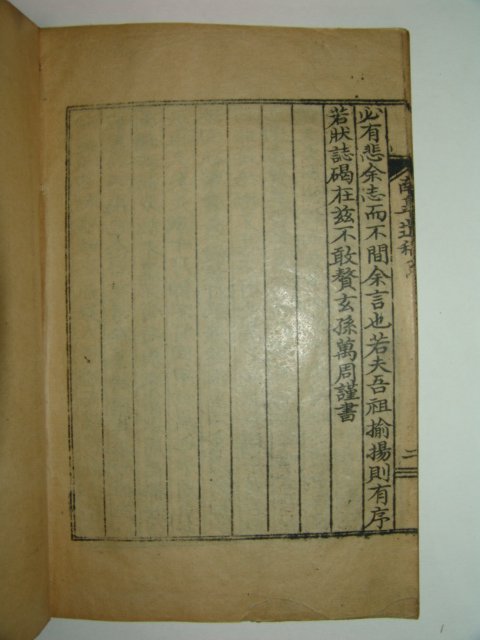 必有悲余志而不間余言也若夫吾祖揄揚則有序
若狀誌碣在玆不敢贅玄孫萬周謹書
二